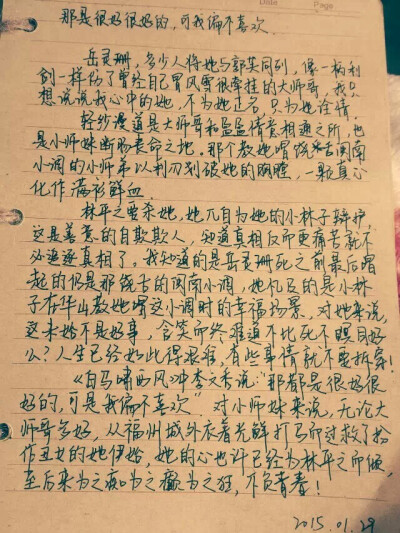 那是很好很好的,可我偏不喜欢.
岳灵珊,多少人将她与郭芙同列,像一柄利
剑一样伤了曾经自己冒风雪很牵挂的大师哥,我只
想说说我心中的她,不为她正名,只为她诠情.
轻纱漫道是大师哥和盈盈情意相通之所,也
是小师妹断肠丧命之地.那个教她唱饶舌闽南
小调的小师弟以利刃划破她的胸膛,一颗真心
化作满衫鲜血.
林平之要杀她,她兀自为她的小林子辩护,
这是善意的自欺欺人,知道真相反而更痛苦就不
必追逐真相了.我知道的是岳灵珊死之前最后唱
起的仍是那饶舌的闽南小调,她忆及的是小林
子在华山教她唱这小调时的幸福场景.对她来说,
这未始不是好事,含笑而终难道不比死不瞑目好
么?人生已经如此得艰难,有些事情就不要拆穿!
《白马啸西风》中李文秀说:"那都是很好很
好的,可是我偏不喜欢".对小师妹来说,无论大
师哥多好,从福州城外衣着光鲜打马而过救了扮
作丑女的她伊始,她的心也许已经为林平之而倾,
至后来为之痴为之癫为之狂,不负青春!
2015.01.29
Date
Page